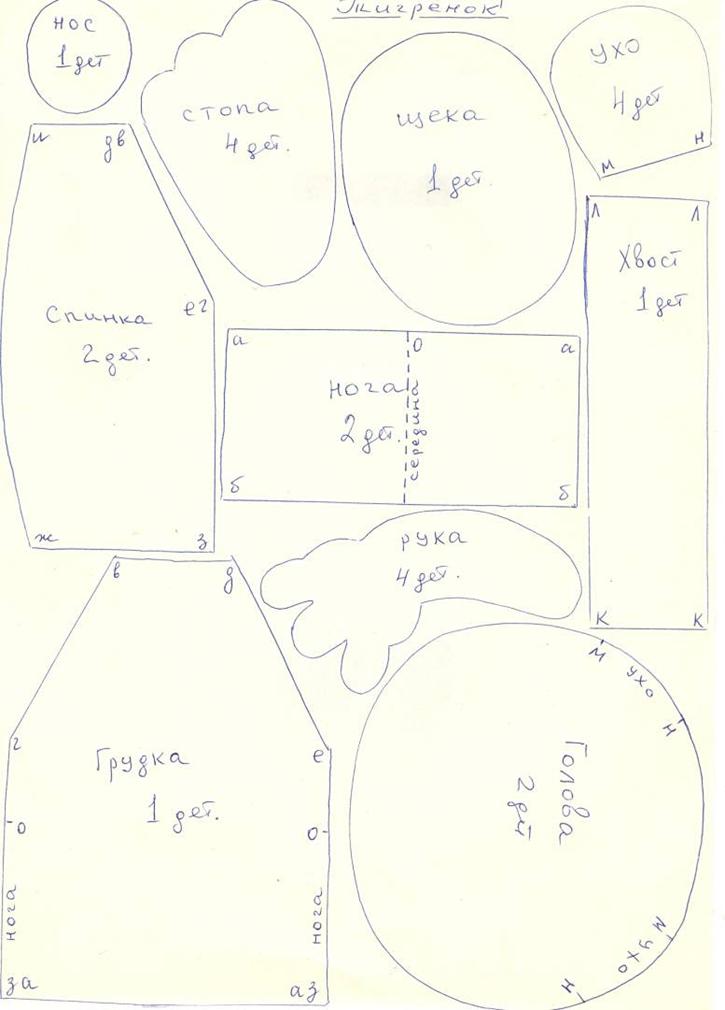 Тигренок!
нос
1 дет
стопа
4 дет.
щека
1 дет.
ухо
4 дет
м
н
и
дв
Спинка
2 дет.
ег
ж
з
а
о
а
нога
2 дет.
середина
б
б
л
л
Хвост
1 дет
к
к
рука
4 дет.
в
д
г
е
Грудка
1 дет.
о
о
нога
нога
за
аз
м
ухо
н
Голова
2 дет
м
ухо
н